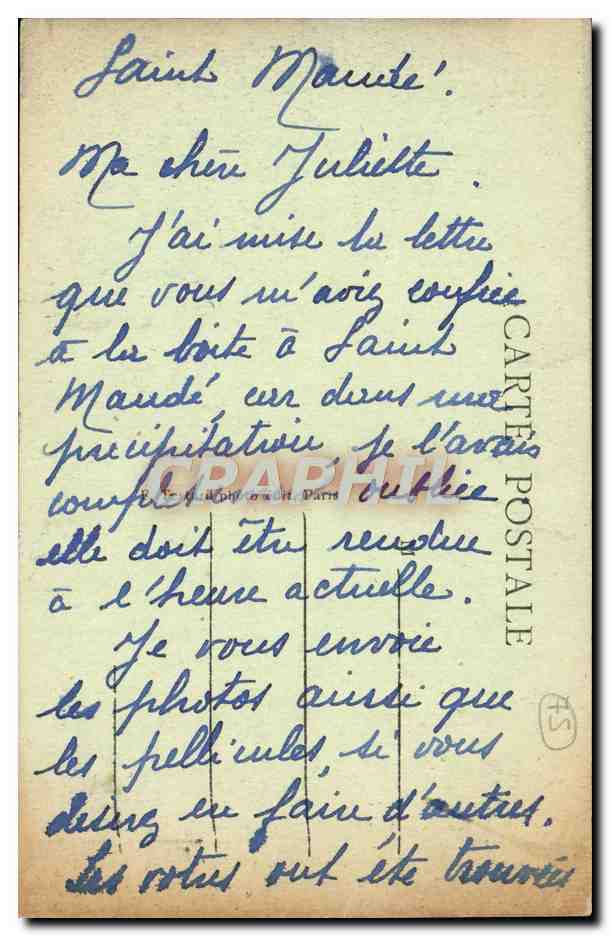 Saint Mandé.
Ma chère Juliette.
J'ai mise la lettre
que vous m'aviez confiée
à la boite à Saint
Mandé, car dans ma
précipitation, je l'avais
complètement oubliée
elle doit être rendue
à l'heure actuelle.
Je vous envoie
les photos ainsi que
les pellicules, si vous
désirez en faire d'autres.
Les votres ont été trouvées
CARTE POSTALE
photo édit. Paris
CPAPHIL
75